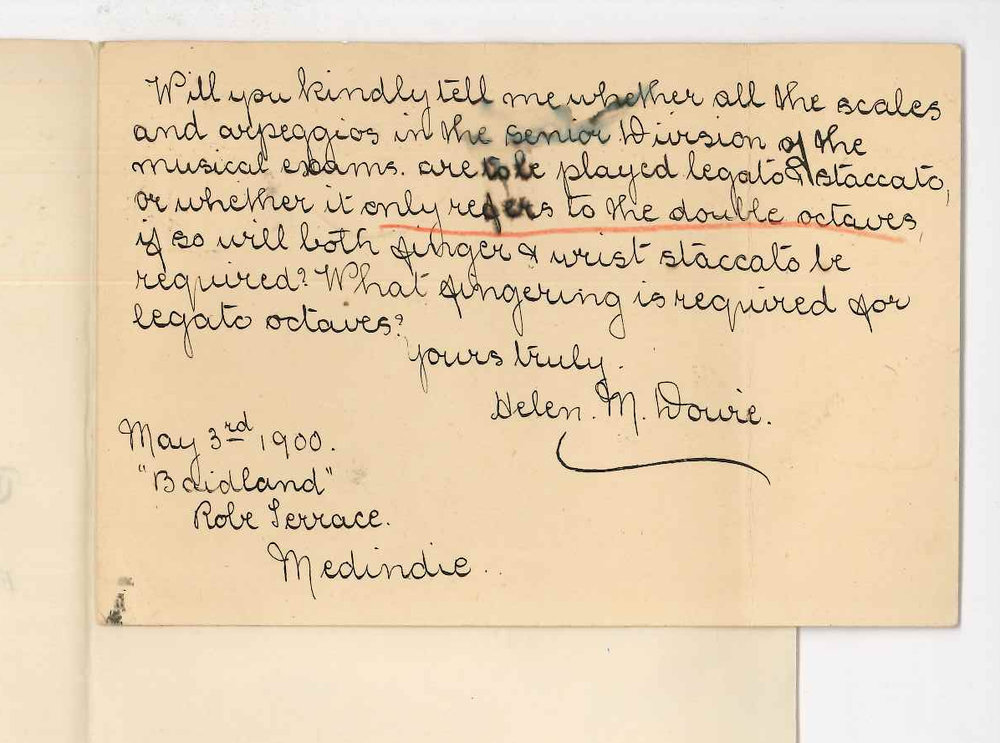 Will you kindly tell me whether all the scales
and arpeggios in the Senior Division of the
musical exams. are to be played legato & staccato,
or whether it only refers to the double octaves,
if so will both finger & wrist staccato be
required? What fingering is required for
legato octaves?
Yours truly.
Helen. M. Dowie.
May 3rd 1900.
"Baidland"
Robe Terrace.
Medindie.